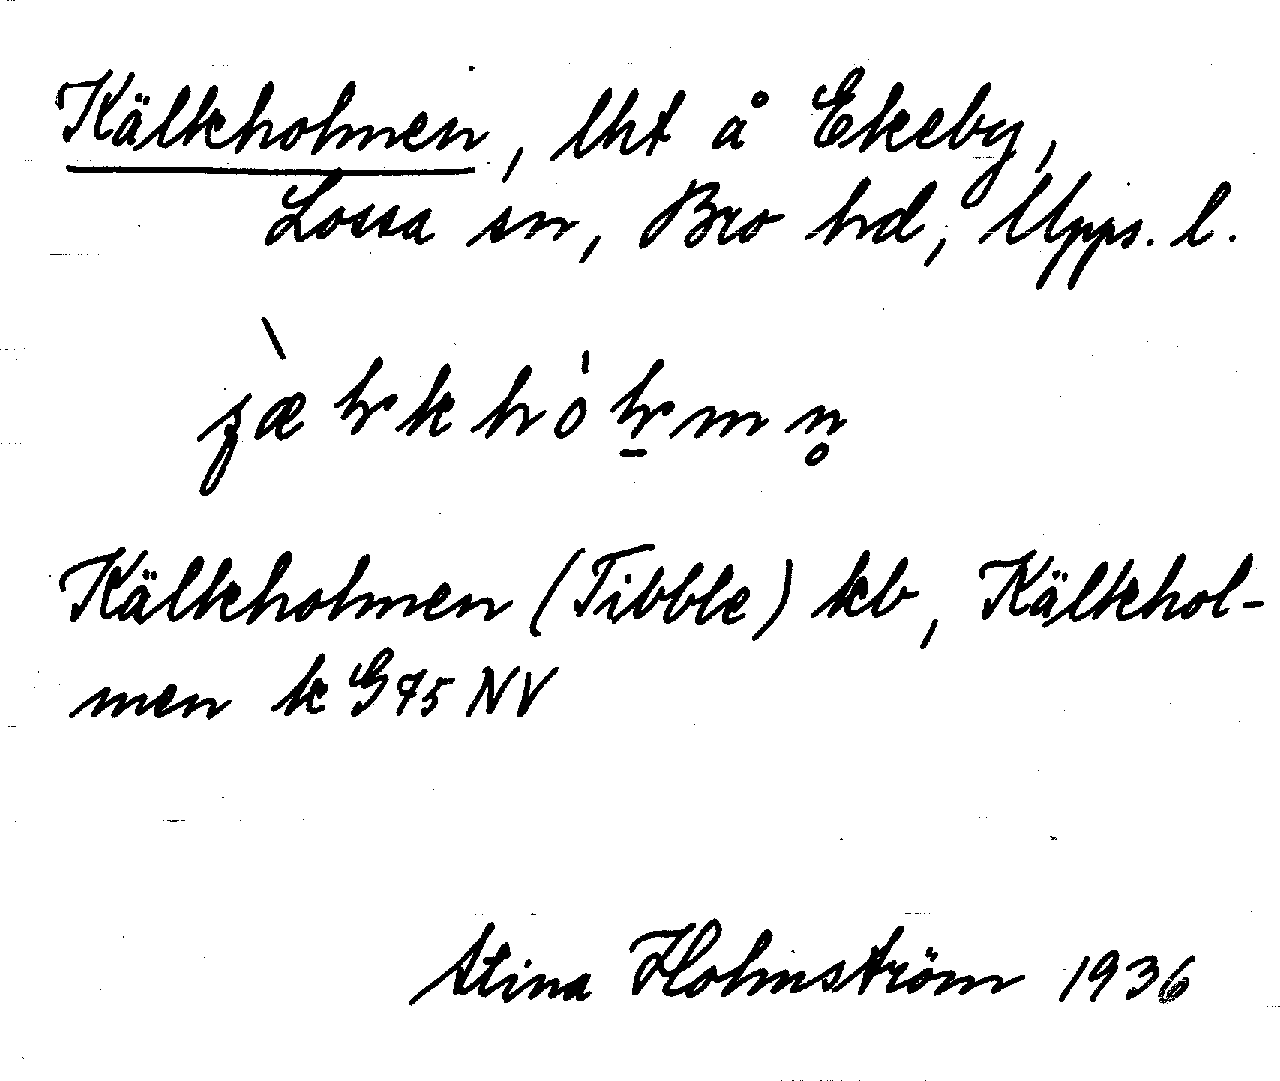 Kälkholmen, lht å Ekeby,
Lossa sn, Bro hd, Upps. l.
Kälkholmen (Tibble) kb, Kälkhol-
men k G 75 NV
Stina Holmström 1936